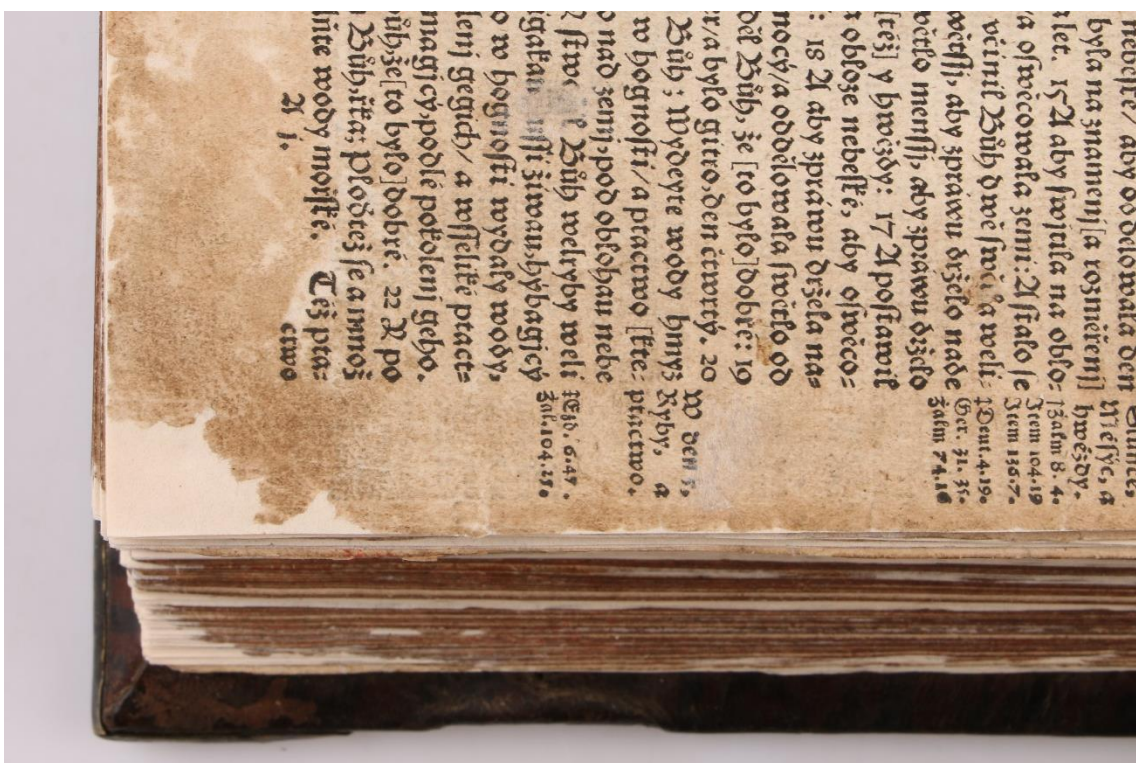 aby oddělowala den
byla na znamenj[a rozměřenj]
let. 15 A aby ſwjtila na oblo-
a oſwěcowala zemi: A ſtalo ſe
včinil Bůh dwě ſwětla welí-
aby zpráwu drželo nade
menſſj, aby zpráwu drželo
[též] y hwězdy: 17 A poſtawil
obloze nebeſké, aby oſwěco-
: 18 A aby zpráwu držela na-
nocý/ a oddělowala ſwětlo od
Bůh, že [to bylo] dobré: 19
a bylo gitro, den čtwrtý. 20
Bůh: Wydeyte wody hmyz
w hognoſti/ a ptactwo [kte:
nad zemj, pod oblohau nebe
Bůh welryby weli
žiwau, hybagjcý
w hognoſti wydaly wody,
gegich/ a wſſeliké ptact-
magjcý, podlé pokolenj geho.
že [to bylo] dobré. 22 A po
Bůh, řka: Ploďtež ſe a množ
wody mořſké. Též pta-
A j. ctwo
Měſýc, a
hwězdy.
† Žalm 8. 4.
Item 104. 19
Item 136. 7.
† Deut. 4. 19.
Ger. 31. 35.
Žalm 74. 16
W den 5,
Ryby, a
ptactwo.
6. 47.
Žal. 104. 25.